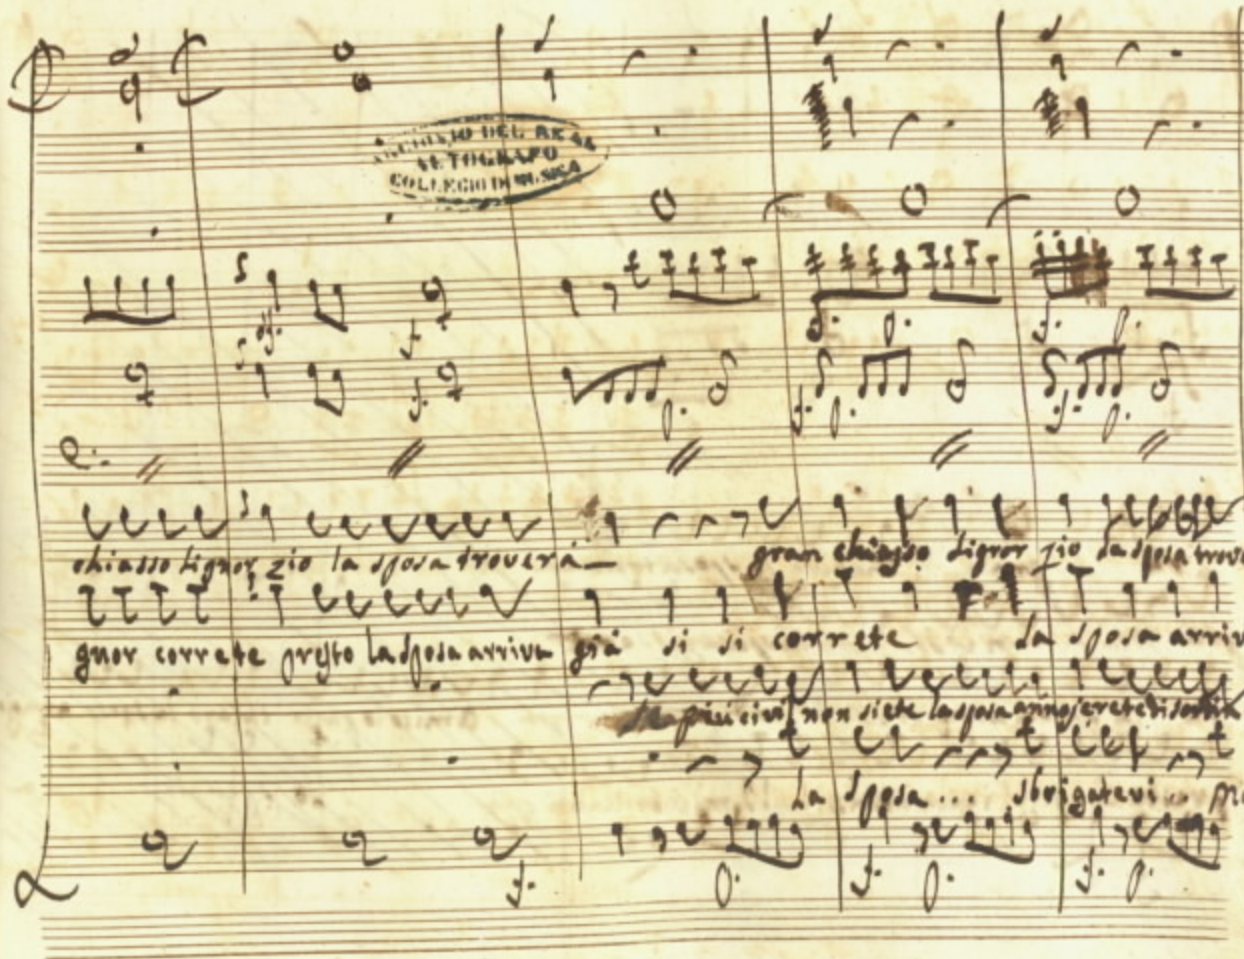 ARCHIVIO DEL REAL
AUTOGRAFO
COLLEGIO DI MUSICA
chiasso signor zio la sposa troverà
gran chiasso signor zio la sposa trove
gnor correte presto la sposa arriva già si si correte la sposa arriv
non siete la sposa
La sposa... sbrigatevi...